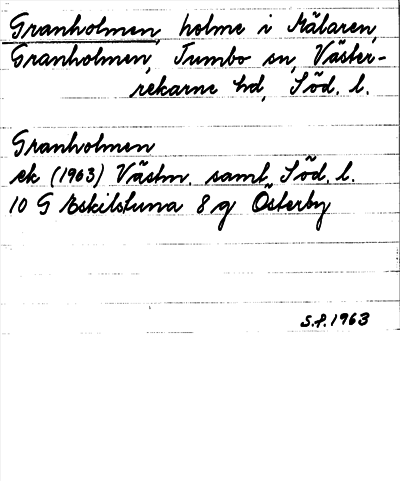 Granholmen, holme i Mälaren,
Granholmen, Tumbo sn, Väster-
rekarne hd, Söd. l.
Granholmen
ek (1963) Västm. samt Söd. l.
10 G Eskilstuna 8 g Österby
S.P. 1963